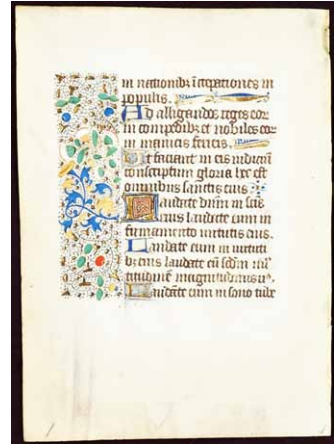 in nationibz i̅crepationes in
populis.
Ad alligandos reges eor
in compedibz et nobiles eor
in manicis ferreis.
Ut faciant in eis iudiciu̅
conscriptum gloria hec est
omnibus sanctis eius
Laudate dn̅m in sc̅is
eius laudate eum in
firmamento uirtutis eius.
Laudate eum in uirtuti
bz eius laudate eu̅ sc̅dm
titudine̅ magnitudinis
Laudate eum in sono tube